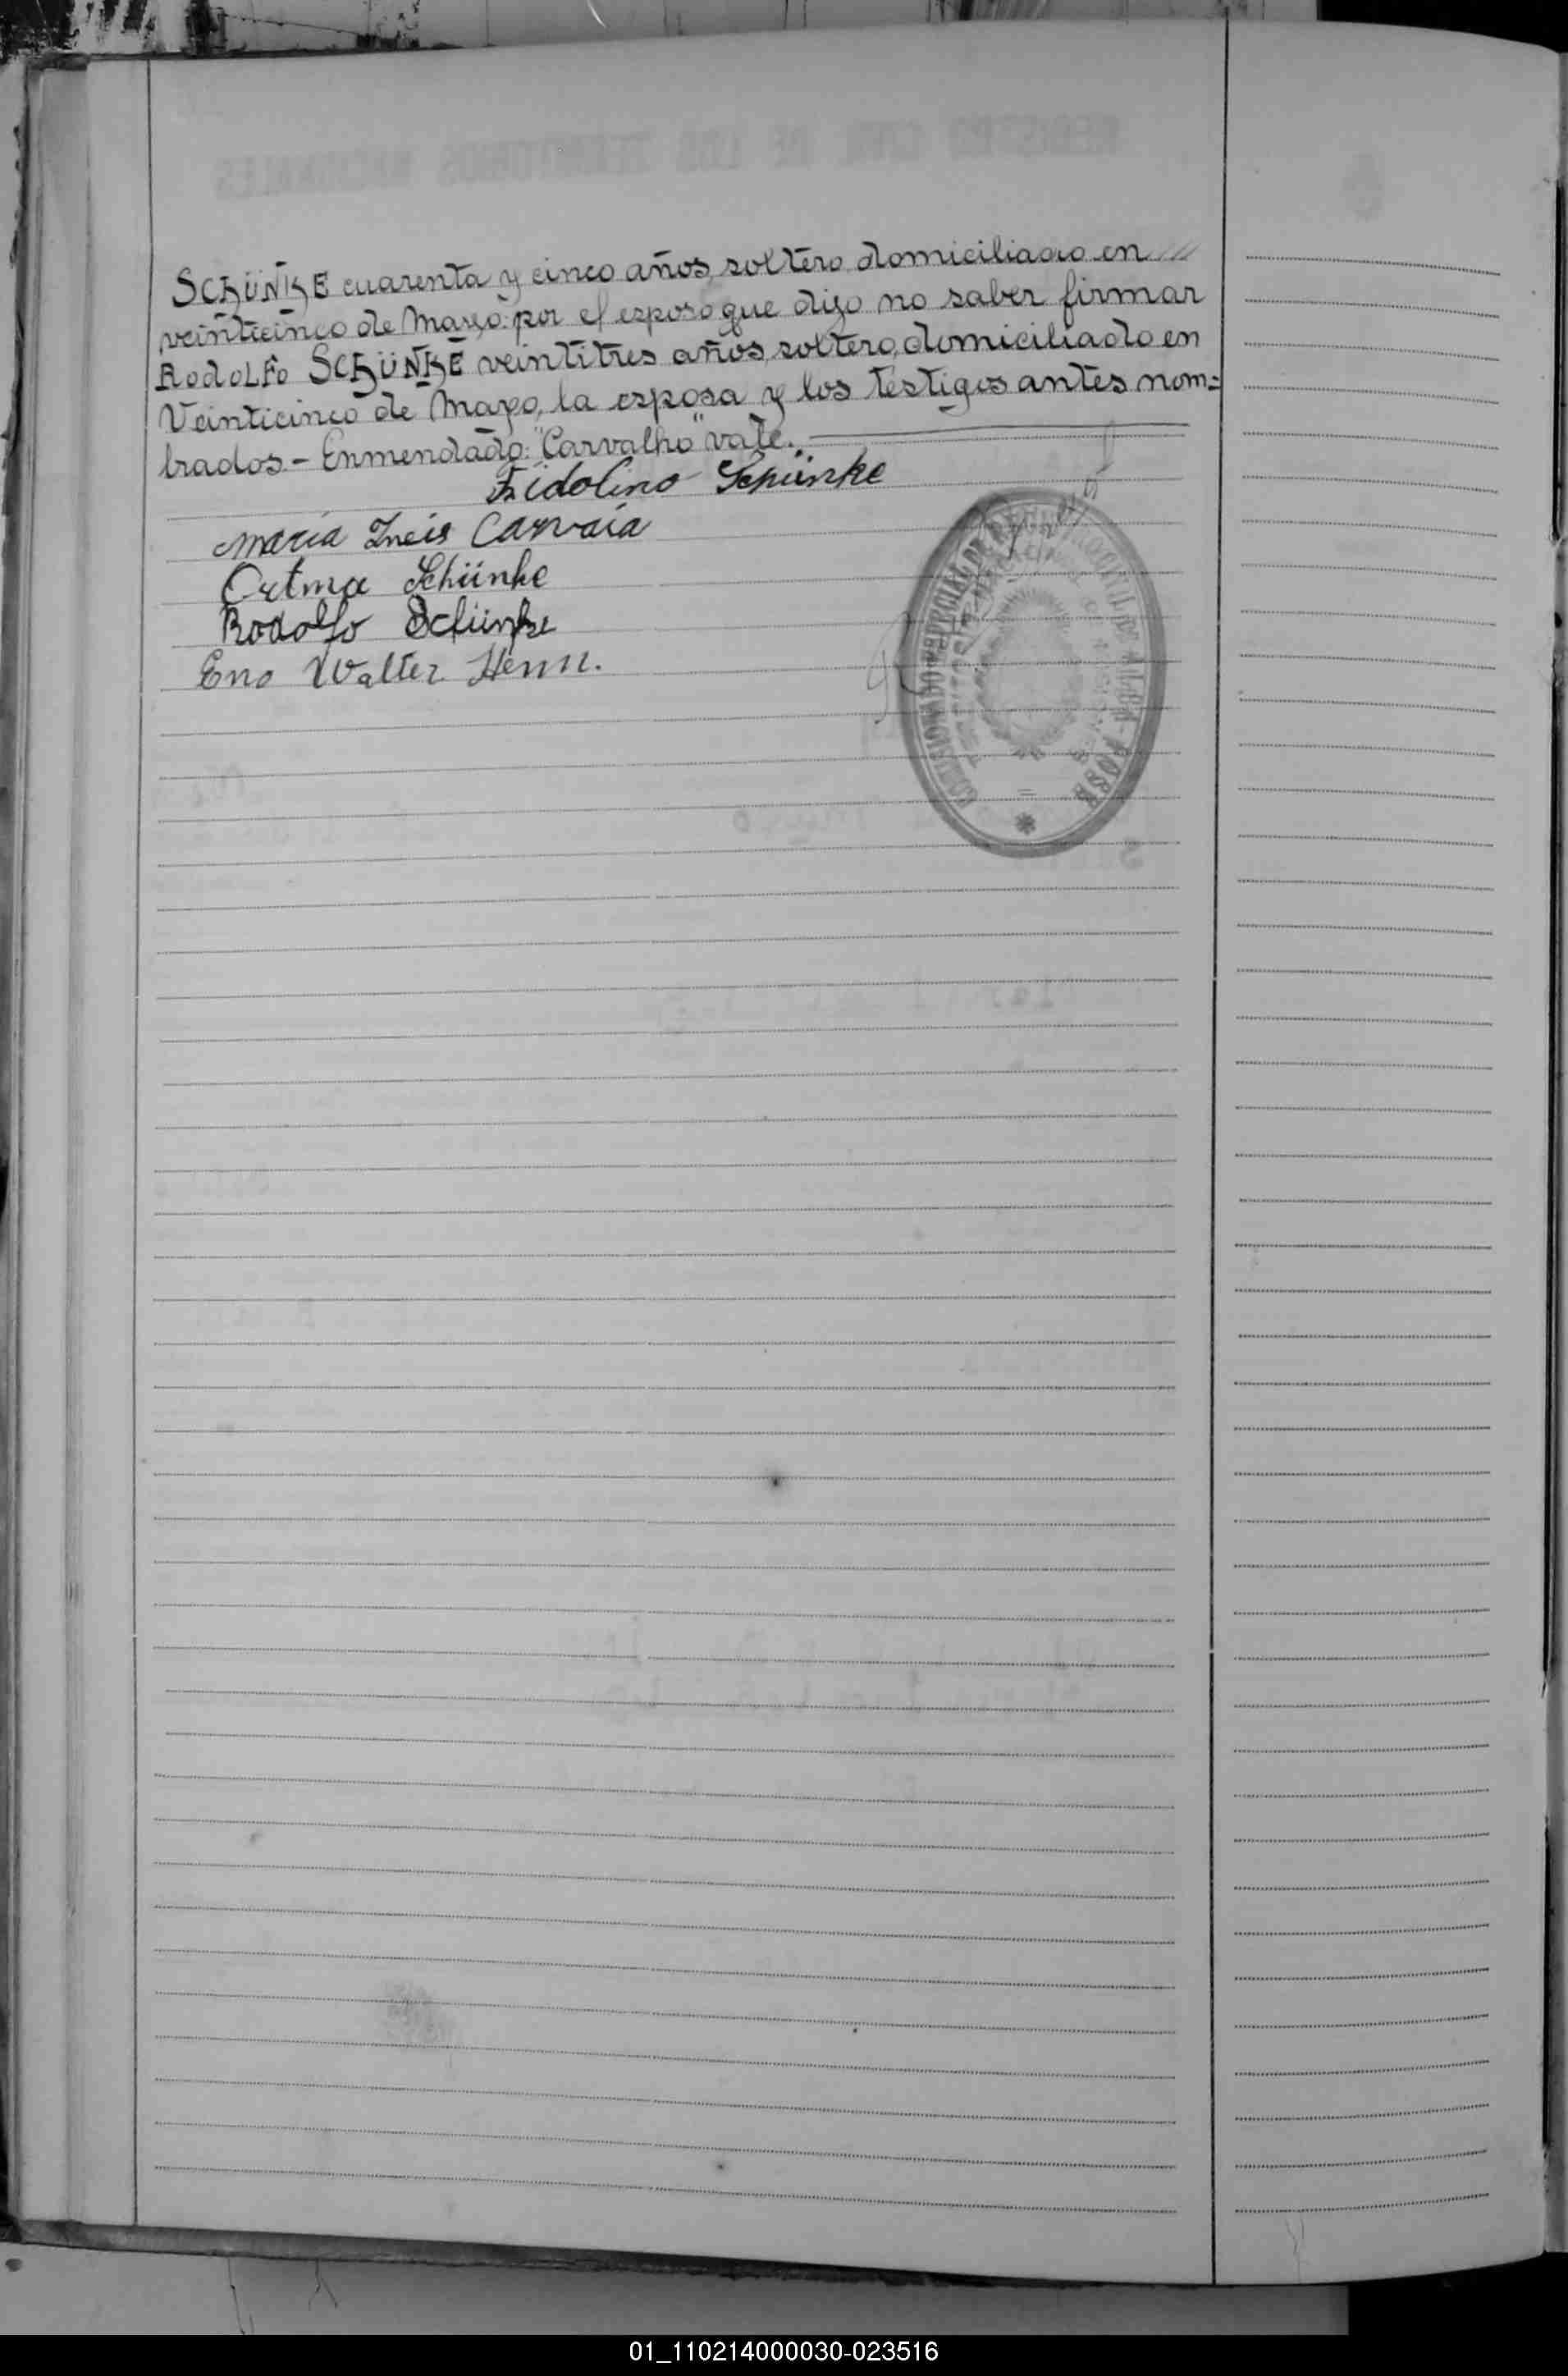 SCHÜNKE cuarenta y cinco años, soltero, domiciliado en
veinticinco de Mayo: por el esposo que dijo no saber firmar
RodoLFo SCHÜNKE veintitres años, soltero, domiciliado en
Veinticinco de Mayo, la esposa y los testigos antes nom=
brados.- Enmendado: "Carvalho" vale.
Fridolino Schünke
María Ineis Carvaia
Schünke
Rodolfo Schünke
Eno Walter Henn.
01_110214000030-023516